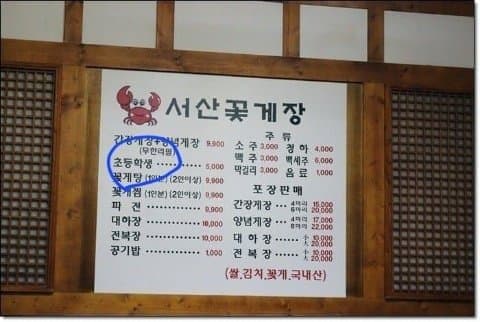 서산꽃게장
간장게장+양념게장 9,900
(무한리필)
초등학생 ············ 5,000
꽃게탕 (1인분) (2인이상) 9,900
꽃게찜 (1인분) (2인이상) 9,900
파 전 ············ 9,900
대하장 ············ 18,000
전복장 ············ 18,000
공기밥 ············ 1,000
주 류
소 주 3,000 청 하 4,000
맥 주 3,000 백세주 6,000
막걸리 3,000 음 료 1,000
포 장 판 매
간장게장 ···· 4마리 15,000
6마리 20,000
양념게장 ···· 4마리 17,000
6마리 22,000
대 하 장 ···· 小 10,000
大 20,000
전 복 장 ···· 小 10,000
大 20,000
(쌀,김치,꽃게,국내산)